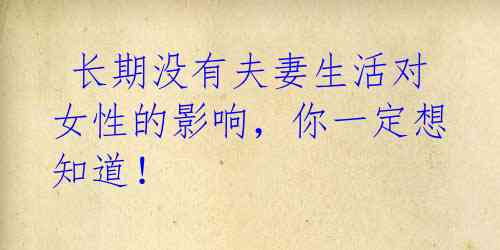 长期没有夫妻生活对
女性的影响，你一定想
知道！